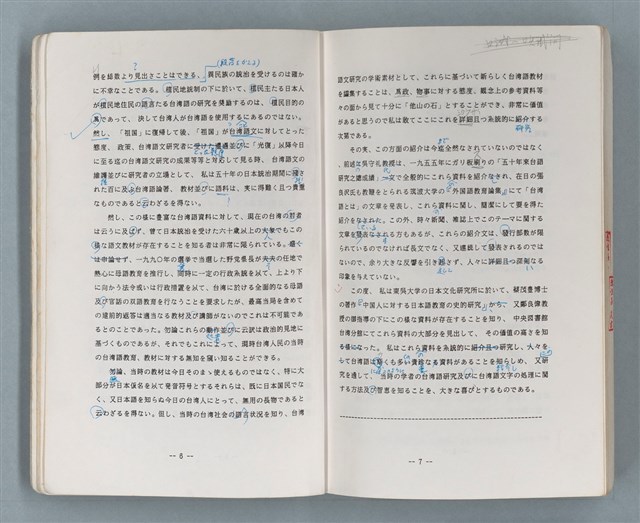 例を結散より見出さことはできる。異民族の統治を受けるのは確か
に不幸なことである。植民地統制の下に於いて、植民主たる日本人
が植民地住民の語言たる台湾語の研究を奨励するのは、植民目的の
為であって、決して台湾人が台湾語を使用するにあるのではない。
然し、「祖国」に復帰して後、「祖国」が台湾語文に対してとった
態度、政策、台湾語文研究者に受けた遭遇並びに「光復」以降今日
に至る迄の台湾語文研究の成果等等と対応して見る時、台湾語文の
維護並びに研究者の立場として、私は五十年の日本統治期間に殘さ
れた百に及ぶ台湾語論著、教材並びに語料は、実に得難く且つ貴重
なものであると云わざるを得ない。
然し、この様に豊富な台湾語資料に対して、現在の台湾の若者
は云うに及ばず、曽て日本統治を受けた六十歳以上の大衆でもこの
様な語文教材が存在することを知る者は非常に限られている。
は申論せず、一九九〇年の選挙で当選した野党県長が夫夫の任地で
熱心に母語教育を推行し、同時に一定の行政系統を以て、上より下
に向かう法令或いは行政措置を以て、台湾に於ける全面的なる母語
及び官話の双語教育を行なうことを要求したが、最高当局を含めて
の違前的返答は適当なる教材及び講師がないのでこれは不可能であ
るとのことであった。勿論これらの動作並びに云訳は政治的見地に
基づくものであるが、それでもこれによって、現時台湾人民の当時
の台湾語教育、教材に対する無知を窺い知ることができる。
勿論、当時の教材は今日そのまゝ使えるものではなく、特に大
部分が日本仮名を以て発音符号とするそれらは、既に日本国民でな
く、又日本語を知らぬ今日の台湾人にとって、無用の長物であると
云わざるを得ない。但し、当時の台湾社会の語言状況を知り、台湾
-- 6 --
語文研究の学術素材として、これらに基づいて新らしく台湾語教材
を編集することは、為政、物事に対する態度、概念上の参考資料等
々の面から見て十分に「他山の石」とすることができ、非常に価値
があると思うので私は敢てここにこれを詳細且つ系統的に紹介する
次第である。
その実、この方面の紹介は今迄全然なされていないのではなく、
前述な呉守礼教授は、一九五五年にガリ板刷りの「五十年來台語
研究之總成績」一文で全般的にこれら資料を紹介なされ、在日の張
良民氏も教鞭をとられる筑波大学の「外国語教育論集」にて「台湾
語とは」の文章を発表し、これら資料に関し、簡潔にして要を得た
紹介をなされた。この外、時々新聞、雑誌上でこのテーマに関する
文章を発表なされる方もあるが、これらの紹介文は、發行部数が限
られているのでなければ長文でなく、又連載して發表されるのでは
ないので、余り大きな反響を引き起さず、人々に詳細且つ深刻なる
印象を与えていない。
この度、私は東呉大学の日本文化研究所に於いて、蔡茂豊博士
の著作「中国人に対する日本語教育の史的研究」から、又鄭良偉教
授の御指導の下にこの様な資料が存在することを知り、中央図書館
台湾分館にてこれら資料の大部分を見出して、その価値の高さを知
る様になった。私はこれら資料を系統的に紹介且つ研究し、人々を
して台湾語は斯くも多い貴重なる資料があることを知らしめ、又研
究を通して、当時の学者の台湾語研究及びに台湾語文字の処理に関
する方法及び智恵を知ることを、大きな喜びとするものである。
-- 7 --